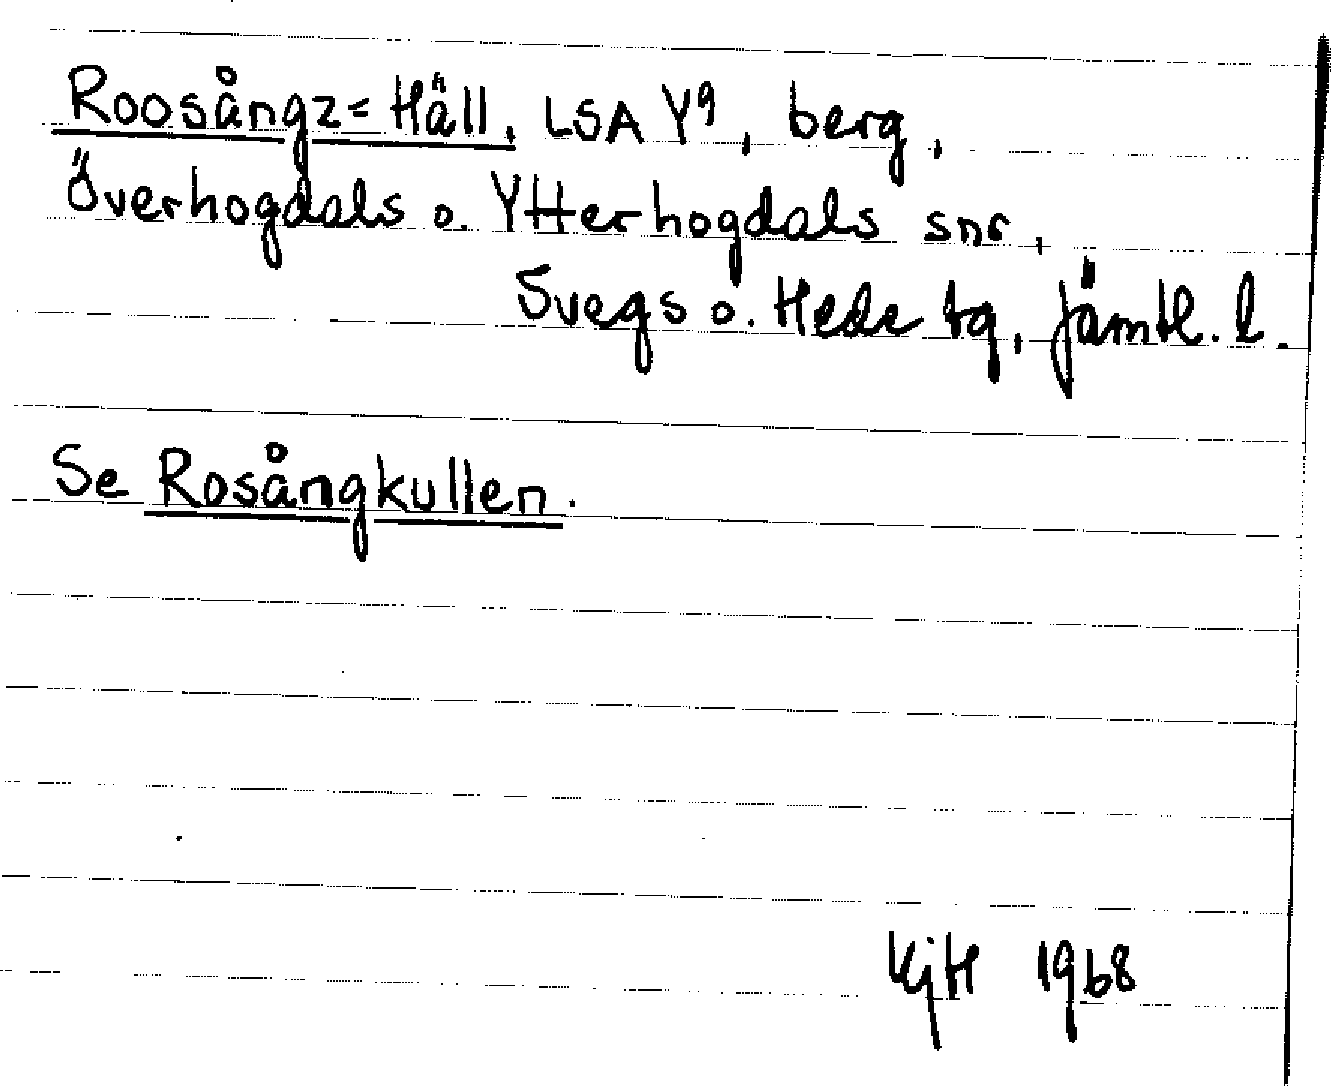 Roosångz= Häll, LSA Y9, berg,
Överhogdals o. Ytterhogdals snr,
Svegs o. Hede tg, Jämtl. l.
Se Rosångkullen.
KjH 1968